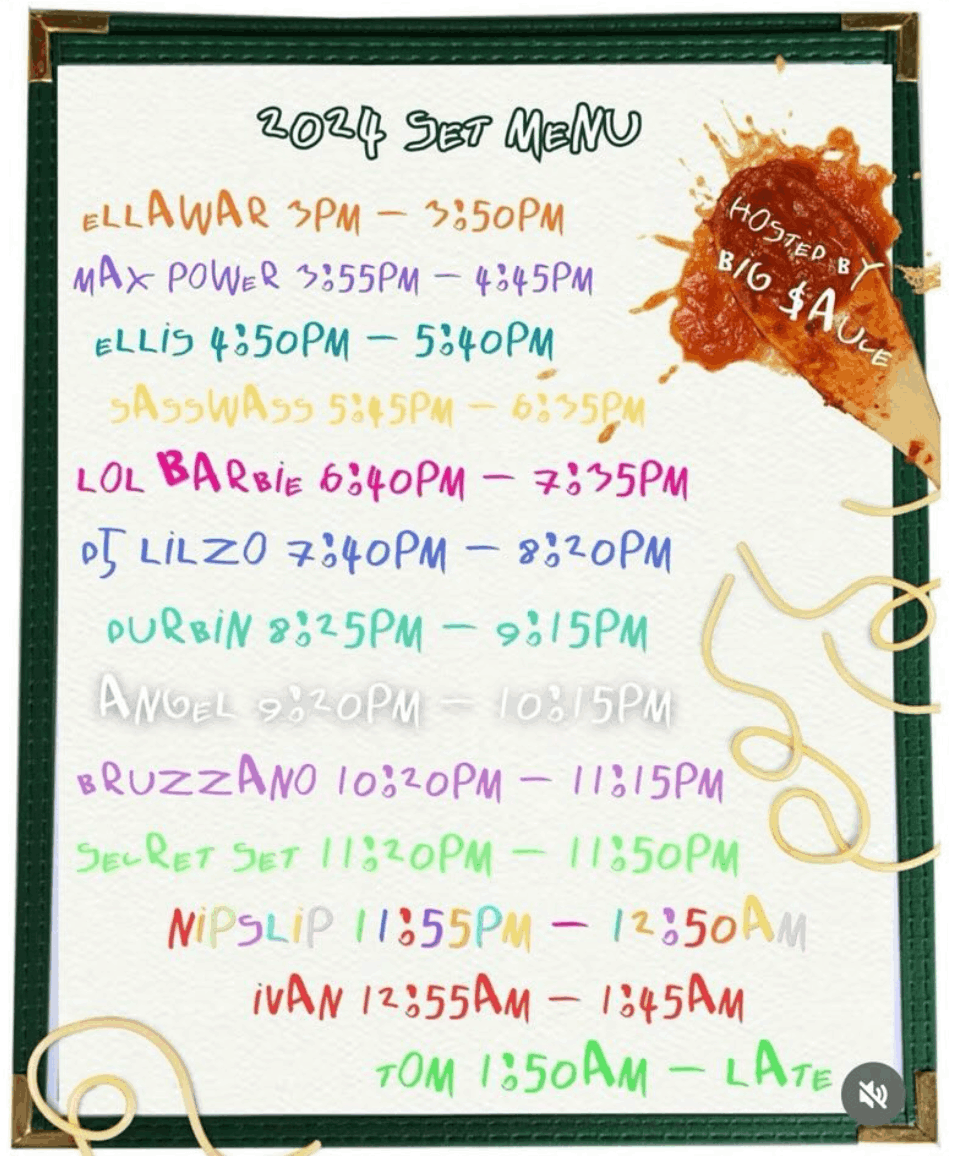 2024 SET MENU
HOSTED BY
BIG $AUCE
ELLAWAR 3PM – 3:50PM
MAX POWER 3:55PM – 4:45PM
ELLIS 4:50PM – 5:40PM
SASSWASS 5:45PM – 6:35PM
LOL BARBIE 6:40PM – 7:35PM
DJ LILZO 7:40PM – 8:20PM
DURBIN 8:25PM – 9:15PM
ANGEL 9:20PM – 10:15PM
BRUZZANO 10:20PM – 11:15PM
SECRET SET 11:20PM – 11:50PM
NIPSLIP 11:55PM – 12:50AM
IVAN 12:55AM – 1:45AM
TOM 1:50AM – LATE